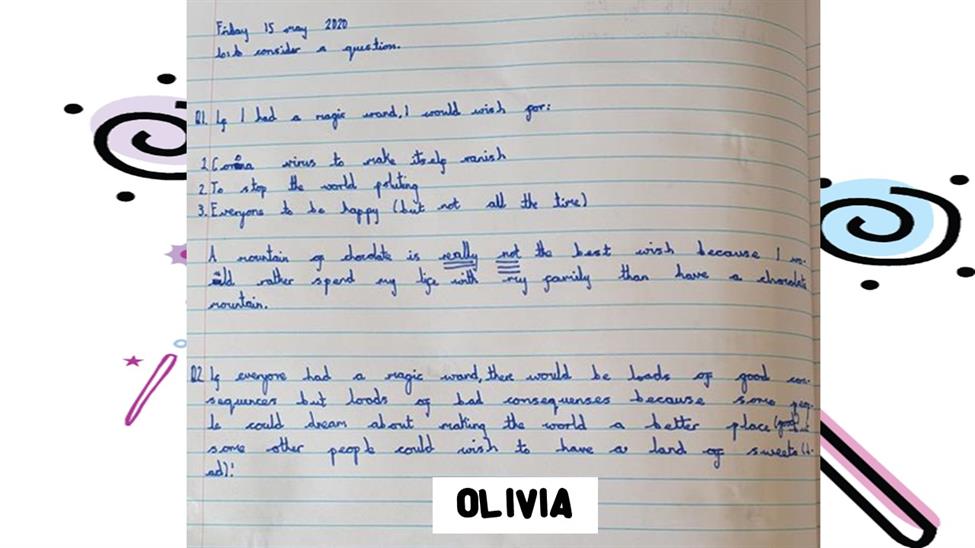 Friday 15 may 2020
to consider a question.
Q1. If I had a magic wand, I would wish for:
1. Corona virus to make itself vanish
2. To stop the world poluting
3. Everyone to be happy (but not all the time)
A mountain of chocolate is really not the best wish because I wo-
uld rather spend my life with my family than have a chocolate
mountain.
Q2 If everyone had a magic wand, there would be loads of good con-
sequences but loads of bad consequenses because some peop-
le could dream about making the world a better place (good)
some other people could wish to have a land of sweets (b-
ad)!
OLIVIA